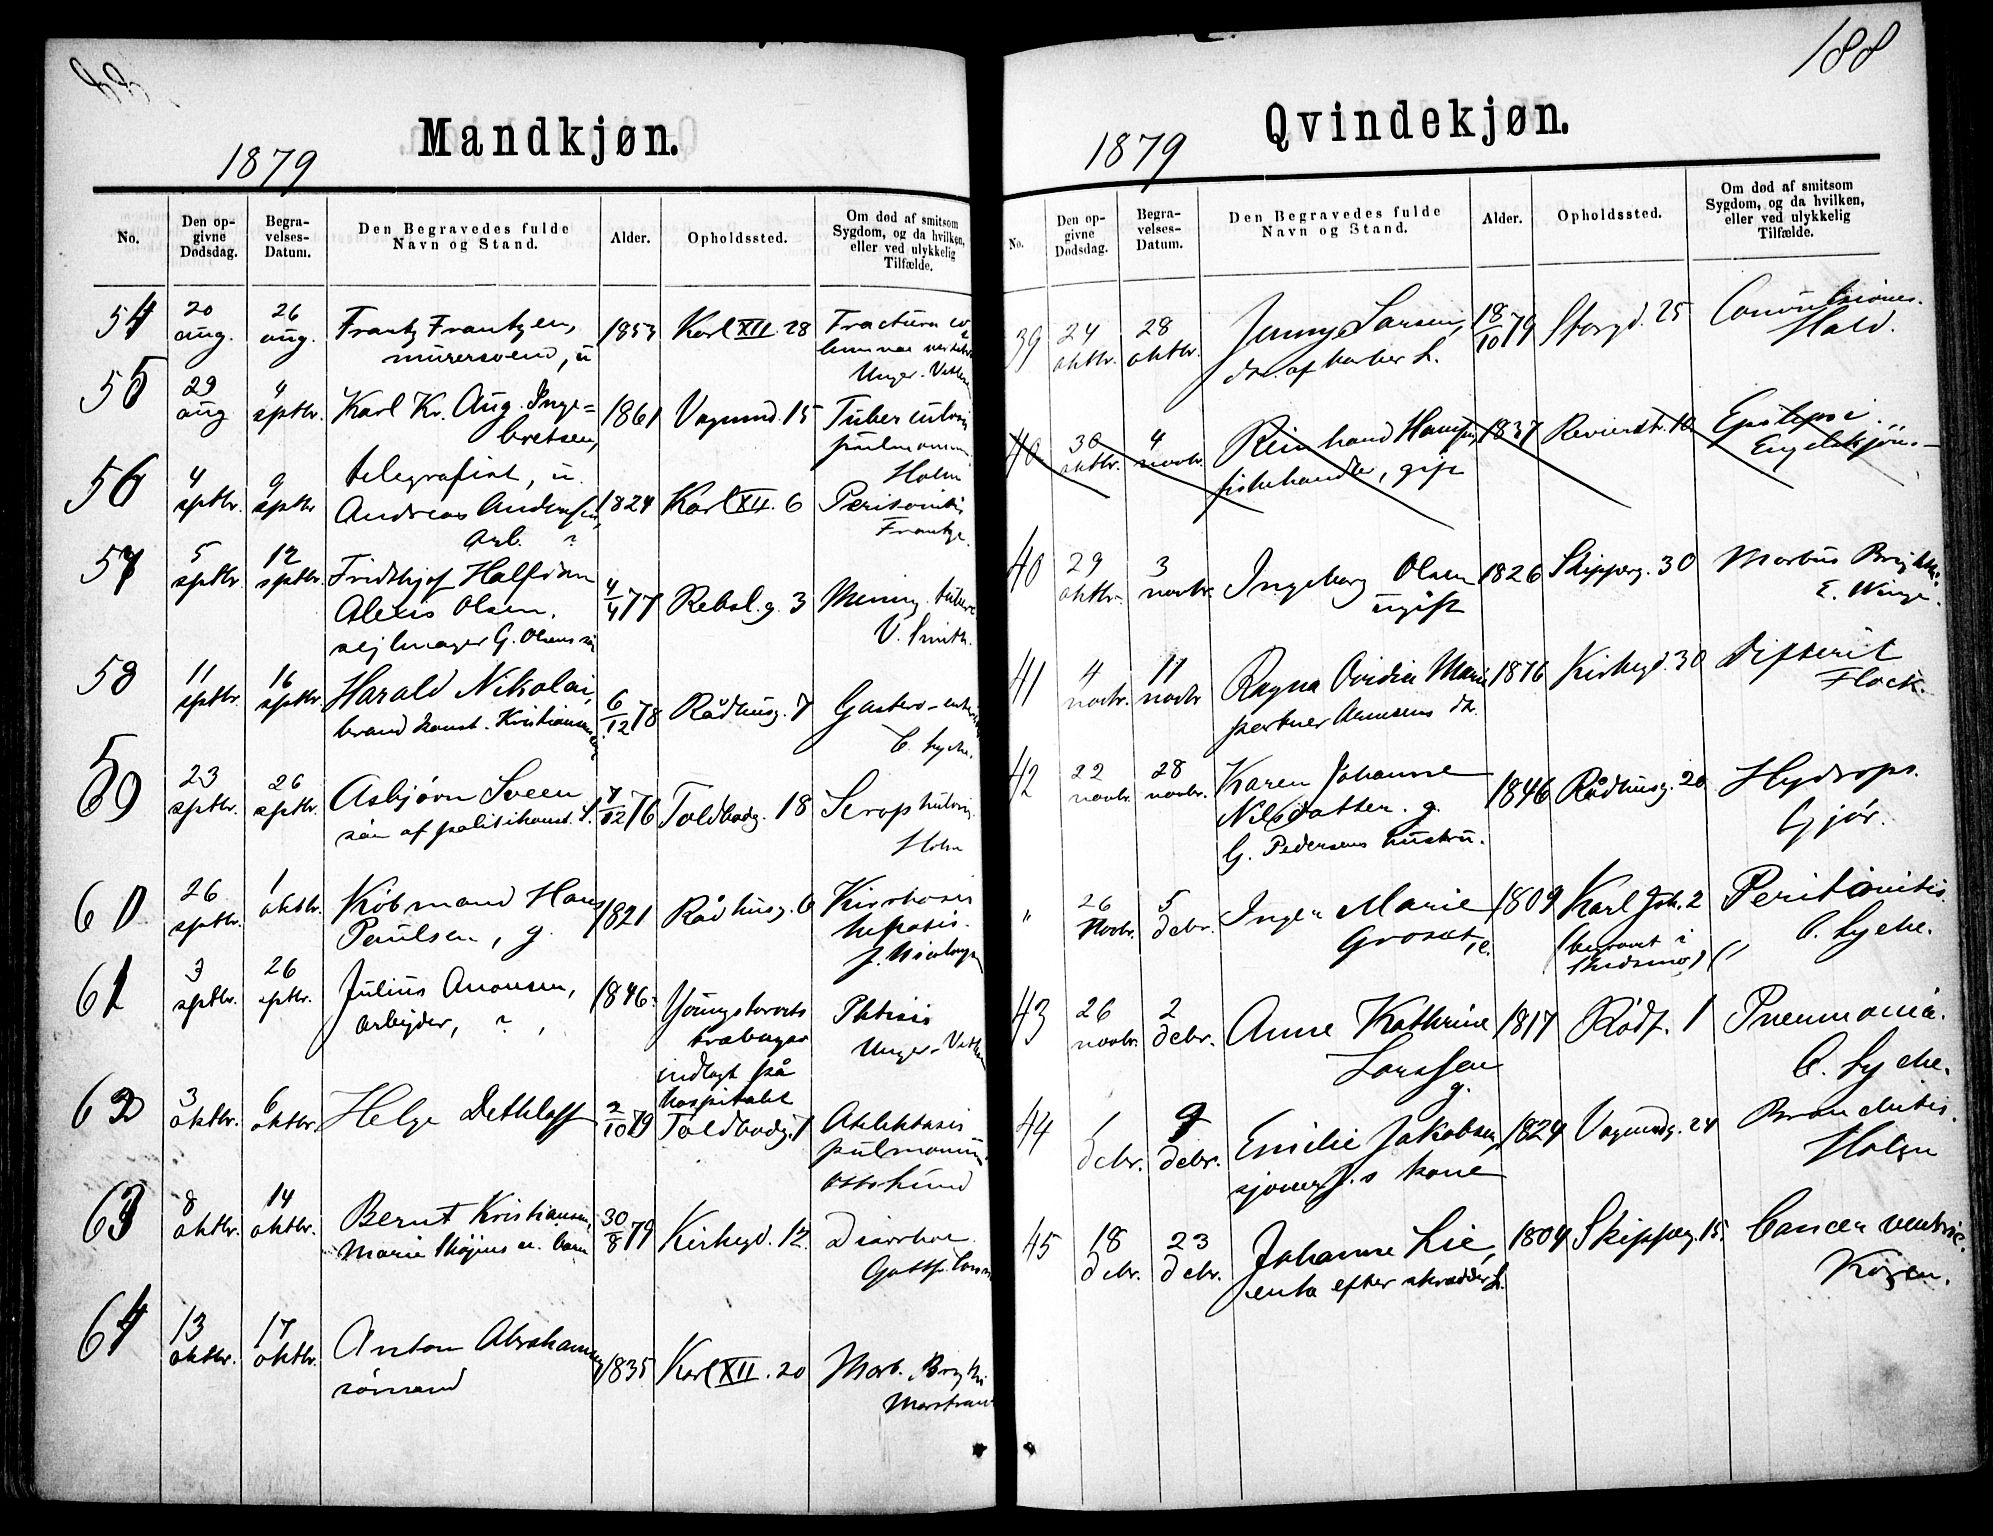 188
Mandkjøn.
1879
No.
Den op-
givne
Dødsdag.
Begra-
velses-
Datum.
Den Begravedes fulde
Navn og Stand.
Alder.
Opholdssted.
Om død af smitsom
Sygdom, og da hvilken,
eller ved ulykkelig
Tilfælde.
54 20 aug. 26 aug. Frantz Frantzen, 1853 Karl XII. 28 Fractura
murersvend, u
Unger-
55 29 aug 4 sptbr. Karl Kr. Aug. Inge= 1861 Vognmd. 15
bretsen,
telegrafist, u.
Holm
56 4 sptbr. 9 sptbr Andreas Andersen, 1824 Karl XII. 6 Peritonitis
arb. ?
57 5 sptbr. 12 sptbr. Fridthjof Halfdan
Alexis Olsen. 4/4 77 Rebsl.g. 3 Mening. tuberc
sejlmager G. Olsens søn
V. Smith.
58 11 sptbr. 16 sptbr. Harald Nikolai, 6/12 78 Rådhusg. 7 Gastero-
brand konst. Kristiansens
C. Lyche.
59 23 sptbr. 26 sptbr. Asbjørn Sveen 7/12 76 Toldbodg. 18
søn af politikonst. S.
Holm
60 26 sptbr. 1 oktbr. Købmand Hans 1821 Rådhusg. 6 Kirrhosis
Paulsen, g. hepatis.
61 3 sptbr. 26 sptbr. Julius Aronsen, 1846. Youngstorvets Phtisis
arbejder, ?
Unger-
indlagt på
hospitalet
62 3 oktbr. 6 oktbr. Helge Dethloff 2/10 79 Toldbodg. 1 Atelektasis
pulmonum
63 8 oktbr. 14 oktbr. Bernt Kristiansen, 30/8 79 Kirkegd. 12. Diarrhoe.
Marie barn
64 13 oktbr. 17 oktbr. Anton Abrahamsen 1835 Karl XII. 20 Morb. Brightii
sømand
Marstrand
Qvindekjøn.
1879
No.
Den op-
givne
Dødsdag.
Begra-
velses-
Datum.
Den Begravedes fulde
Navn og Stand.
Alder.
Opholdssted.
Om død af smitsom
Sygdom, og da hvilken,
eller ved ulykkelig
Tilfælde.
39 24 oktbr. 28 oktbr. Jenny Larsen, 18/10 79 Storgd. 25 Convulsiones.
dr. af L.
Hald.
40 30 oktbr. 4 novbr. Reinhard Hansen, 1837 Revierstr. Epilepsi.
fiskehandler, gift
Engelskjøn-
40 29 oktbr. 3 novbr. Ingeborg Olsen 1826 Skipperg. 30 Morbus Brightii.
ugift
E. Winge.
41 4 novbr. 11 novbr Ragna Ovidia Marie 1876 Kirkegd. 30 Difterit
portner dr.
Flock.
42 22 novbr. 28 novbr. Karen Johanne 1846 Rådhusg. 20 Hydrops.
Nilsdatter. g.
Gjør.
G. Pedersens hustru.
" 26 Novbr. 5 debr. Inger Marie 1809 Karl Joh. 2 Peritonitis.
Grosæt, e. (begravet i
Skedsmo)
C. Lyche.
43 26 novbr. 2 debr. Anne Kathrine 1817 Rådpl. 1 Pneumonia.
Larssen
g.
C. Lyche.
44 1 debr. 9 debr. Emilie Jakobsen, 1824 Vognmdg. 24 Bronchitis.
kone
Holm
45 18 debr. 23 debr. Johanne Lie, 1804 Skipperg. 15. Cancer ventric.
enke efter skrædder L.